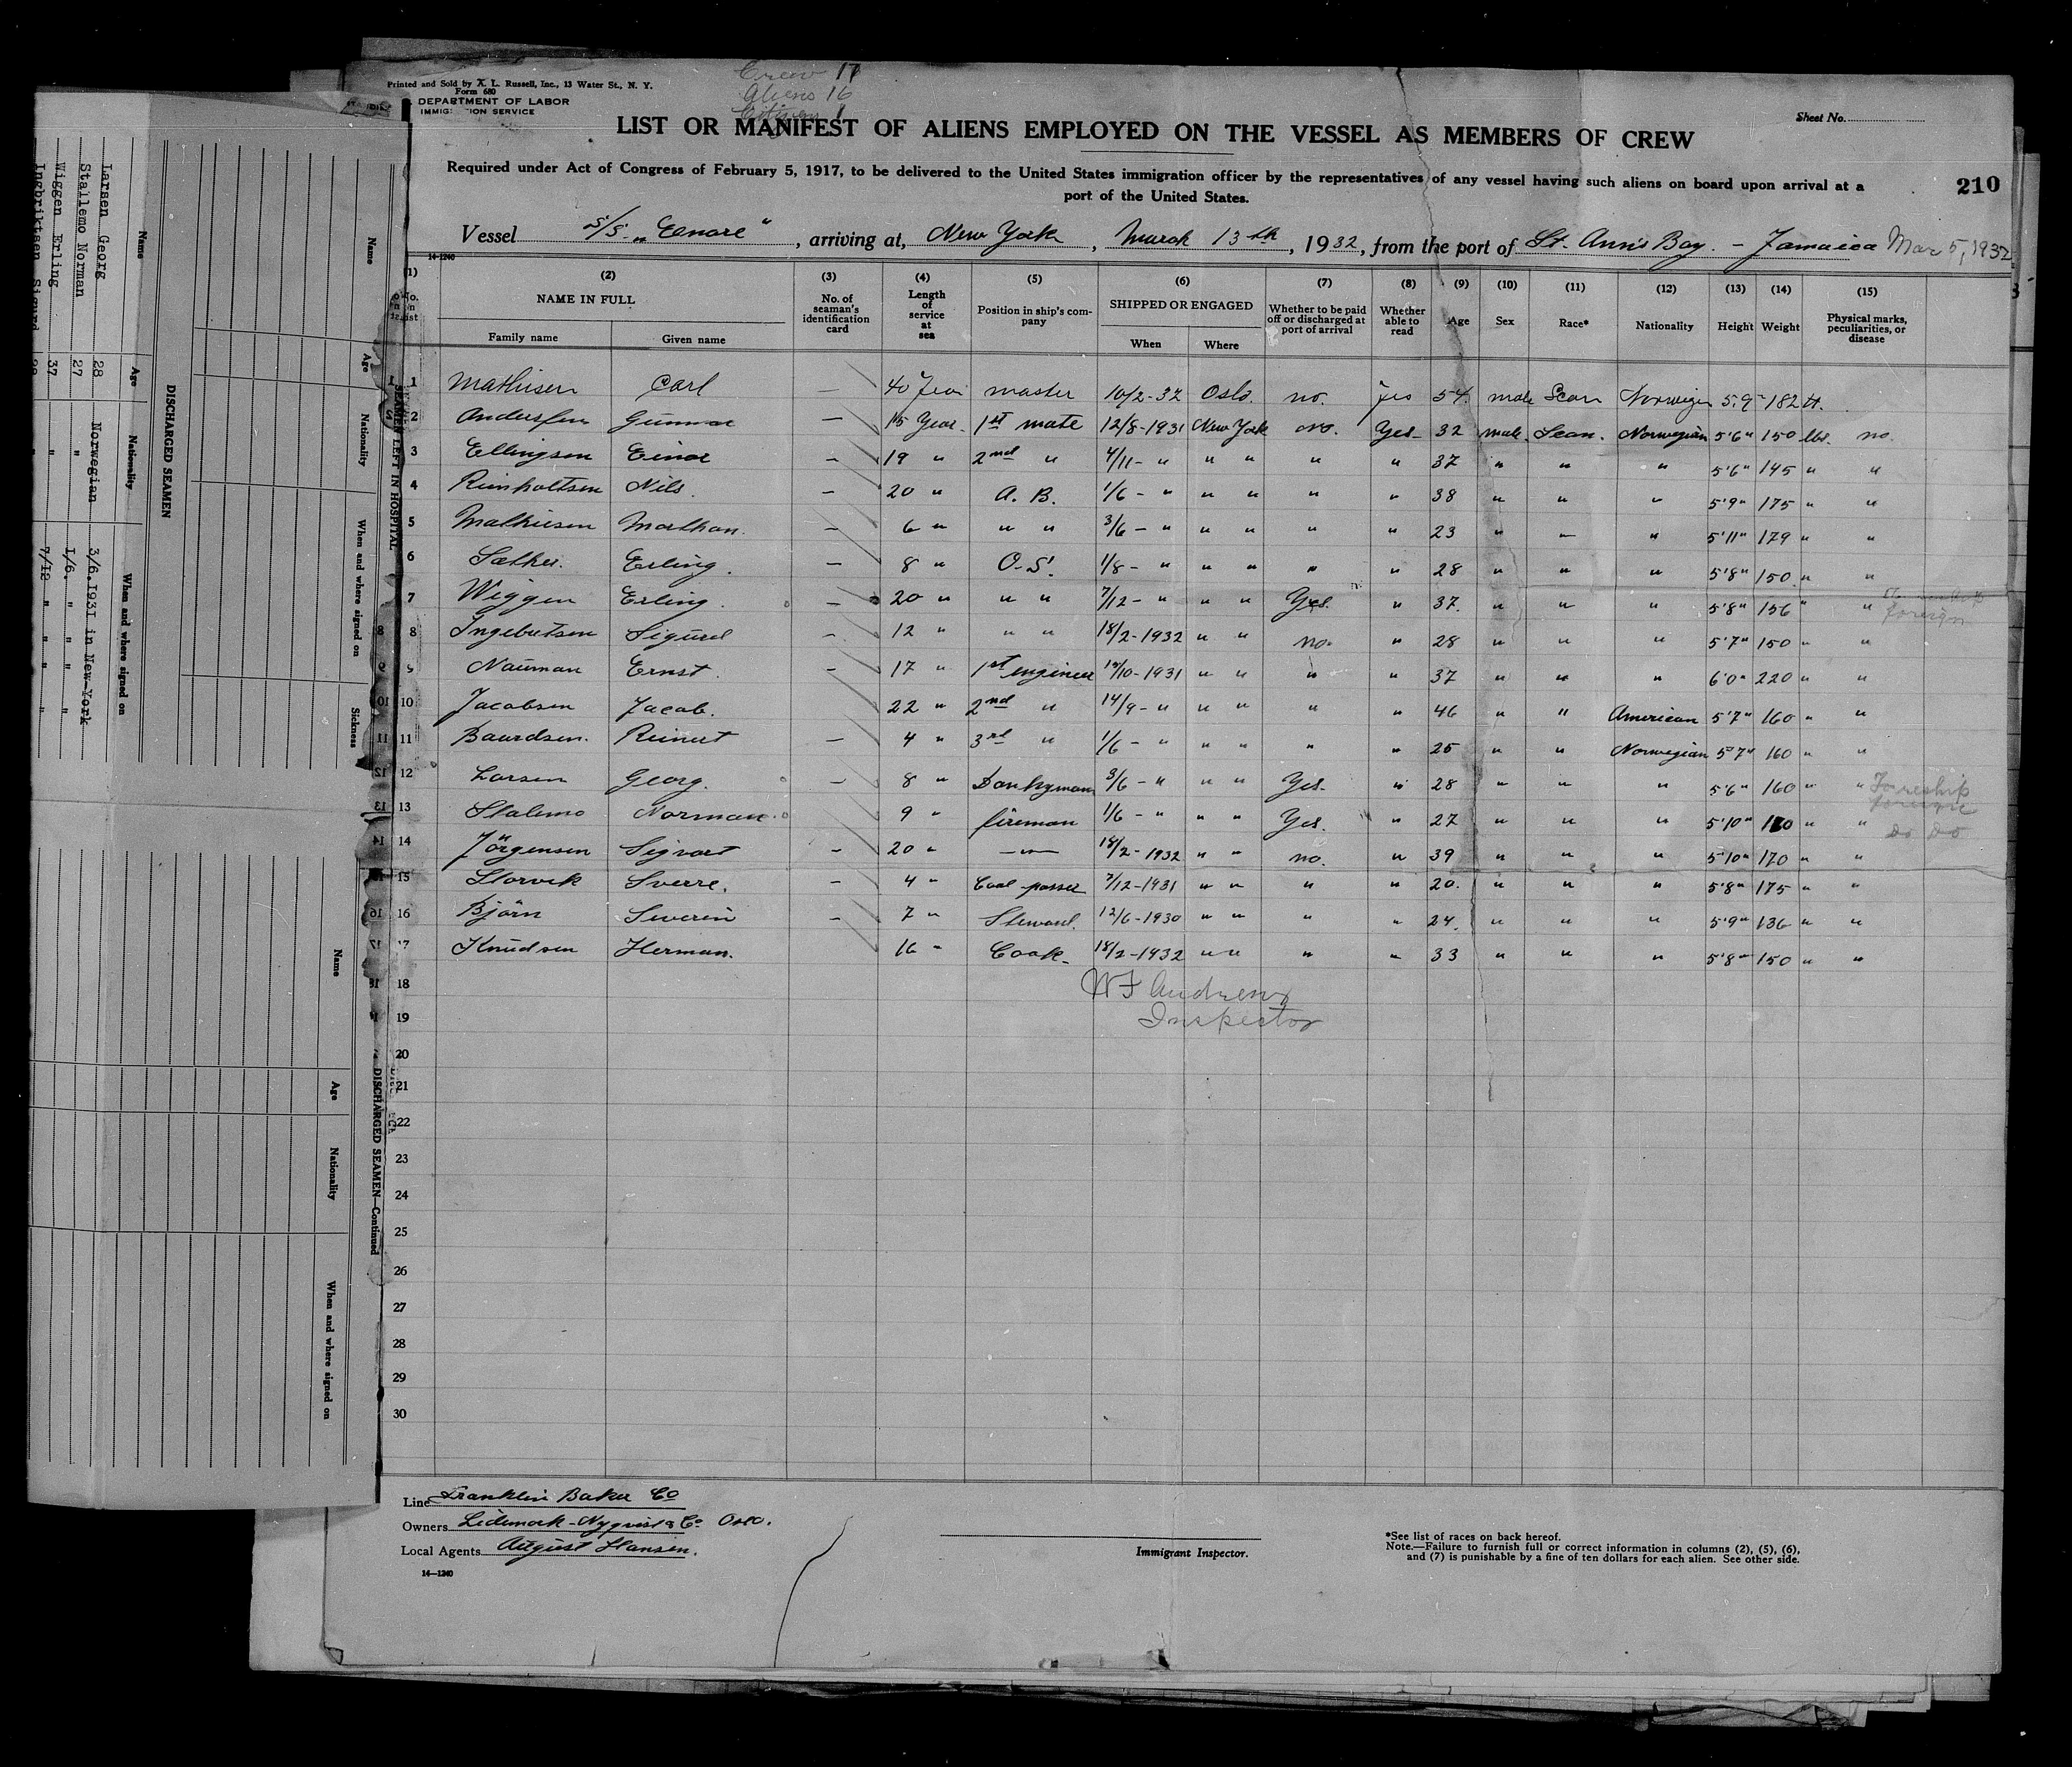 Printed and Sold by A. L. Russell, Inc., 13 Water St., N. Y.
Form 680
DEPARTMENT OF LABOR
Crew 17
Aliens 16
Citizen 1
Sheet No.
LIST OR MANIFEST OF ALIENS EMPLOYED ON THE VESSEL AS MEMBERS OF CREW
Required under Act of Congress of February 5, 1917, to be delivered to the United States immigration officer by the representatives of any vessel having such aliens on board upon arrival at a
port of the United States.
210
Vessel S/S „Elnore", arriving at, New York, March 13th, 1932, from the port of St. Ann's Bay. - Jamaica Mar 5, 1932
14-1240
(1) (2) (3) (4) (5) (6) (7) (8) (9) (10) (11) (12) (13) (14) (15)
NAME IN FULL No. of seaman's identification card Length of service at sea Position in ship's company SHIPPED OR ENGAGED Whether to be paid off or discharged at port of arrival Whether able to read Age Sex Race* Nationality Height Weight Physical marks, peculiarities, or disease
Family name Given name When Where
1 Mathisen Carl — 40 Year master 10/2-32 Oslo. no. yes 54. male Scan Norwegian 5.9" 182 tt.
2 Andersen Gunnar — 15 Year 1st mate 12/8-1931 New York no. Yes 32 male Scan. Norwegian 5'6" 150 lbs. no.
3 Ellingsen Einar — 19 " 2nd " 4/11- " " " " " 37 " " " 5'6" 145 " "
4 Reinholtsen Nils. — 20 " A. B. 1/6 - " " " " " 38 " " " 5'9" 175 " "
5 Mathiesen Mathan. — 6 " " " 3/6 - " " " " " 23 " " " 5'11" 179 " "
6 Sather. Erling. — 8 " O.S. 1/8 - " " " " " 28 " " " 5'8" 150 " "
7 Wiggen Erling. — 20 " " " 7/12 - " " " Yes. " 37. " " " 5'8" 156 " " foreign
8 Ingebretsen Sigurd — 12 " " " 18/2-1932 " " no. " 28 " " " 5'7" 150 " "
9 Nauman Ernst. — 17 " 1st engineer 10/10-1931 " " " " 37 " " " 6'0" 220 " "
10 Jacobsen Jacob. 22 " 2nd " 14/9 - " " " " " 46 " " American 5'7" 160 " "
11 Baardsen. Reinert — 4 " 3rd " 1/6 - " " " " " 25 " " Norwegian 5'7" 160 " "
12 Larsen Georg. — 8 " Donkeyman 3/6 - " " " Yes. " 28 " " " 5'6" 160 " " To reship foreign
13 Stalemo Norman. — 9 " fireman 1/6 - " " " Yes. " 27 " " " 5'10" 180 " " Do Do
14 Jörgensen Sigvart — 20 " —"— 18/2-1932 " " no. " 39 " " " 5'10" 170 " "
15 Storvik Sverre. — 4 " Coal passer 7/12-1931 " " " " 20. " " " 5'8" 175 " "
16 Björn Severin — 7 " Steward. 12/6-1930 " " " " 24. " " " 5'9" 136 " "
17 Knudsen Herman. 16 " Cook 18/2-1932 " " " " 33 " " " 5'8" 150 " "
18
19
W F Andrews
Inspector
20
21
22
23
24
25
26
27
28
29
30
Line Franklin Baker Co
Owners Lidemark-Nyqvist & Co. Oslo.
Local Agents August Hansen.
14—1240
Immigrant Inspector.
*See list of races on back hereof.
Note.—Failure to furnish full or correct information in columns (2), (5), (6),
and (7) is punishable by a fine of ten dollars for each alien. See other side.
SEAMEN LEFT IN HOSPITAL
Name Age Nationality When and where signed on Sickness
DISCHARGED SEAMEN
Name Age Nationality When and where signed on
Larsen Georg 28 Norwegian 3/6.1931 in New-York
Stallemo Norman 27 " 1/6. " " "
Wiggen Erling 37 " 7/12 " " "
Ingbriktsen Sigurd
DISCHARGED SEAMEN—Continued
Name Age Nationality When and where signed on